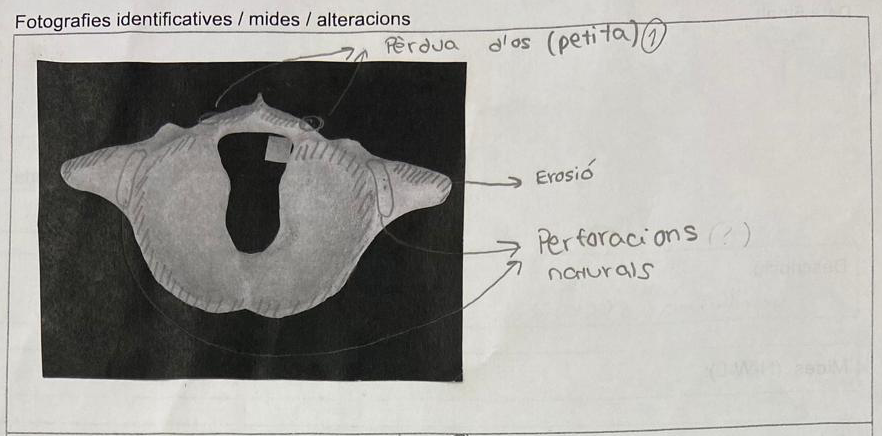 Fotografies identificatives / mides / alteracions
Pèrdua d'os (petita) 1
Erosió
Perforacions (?)
naturals